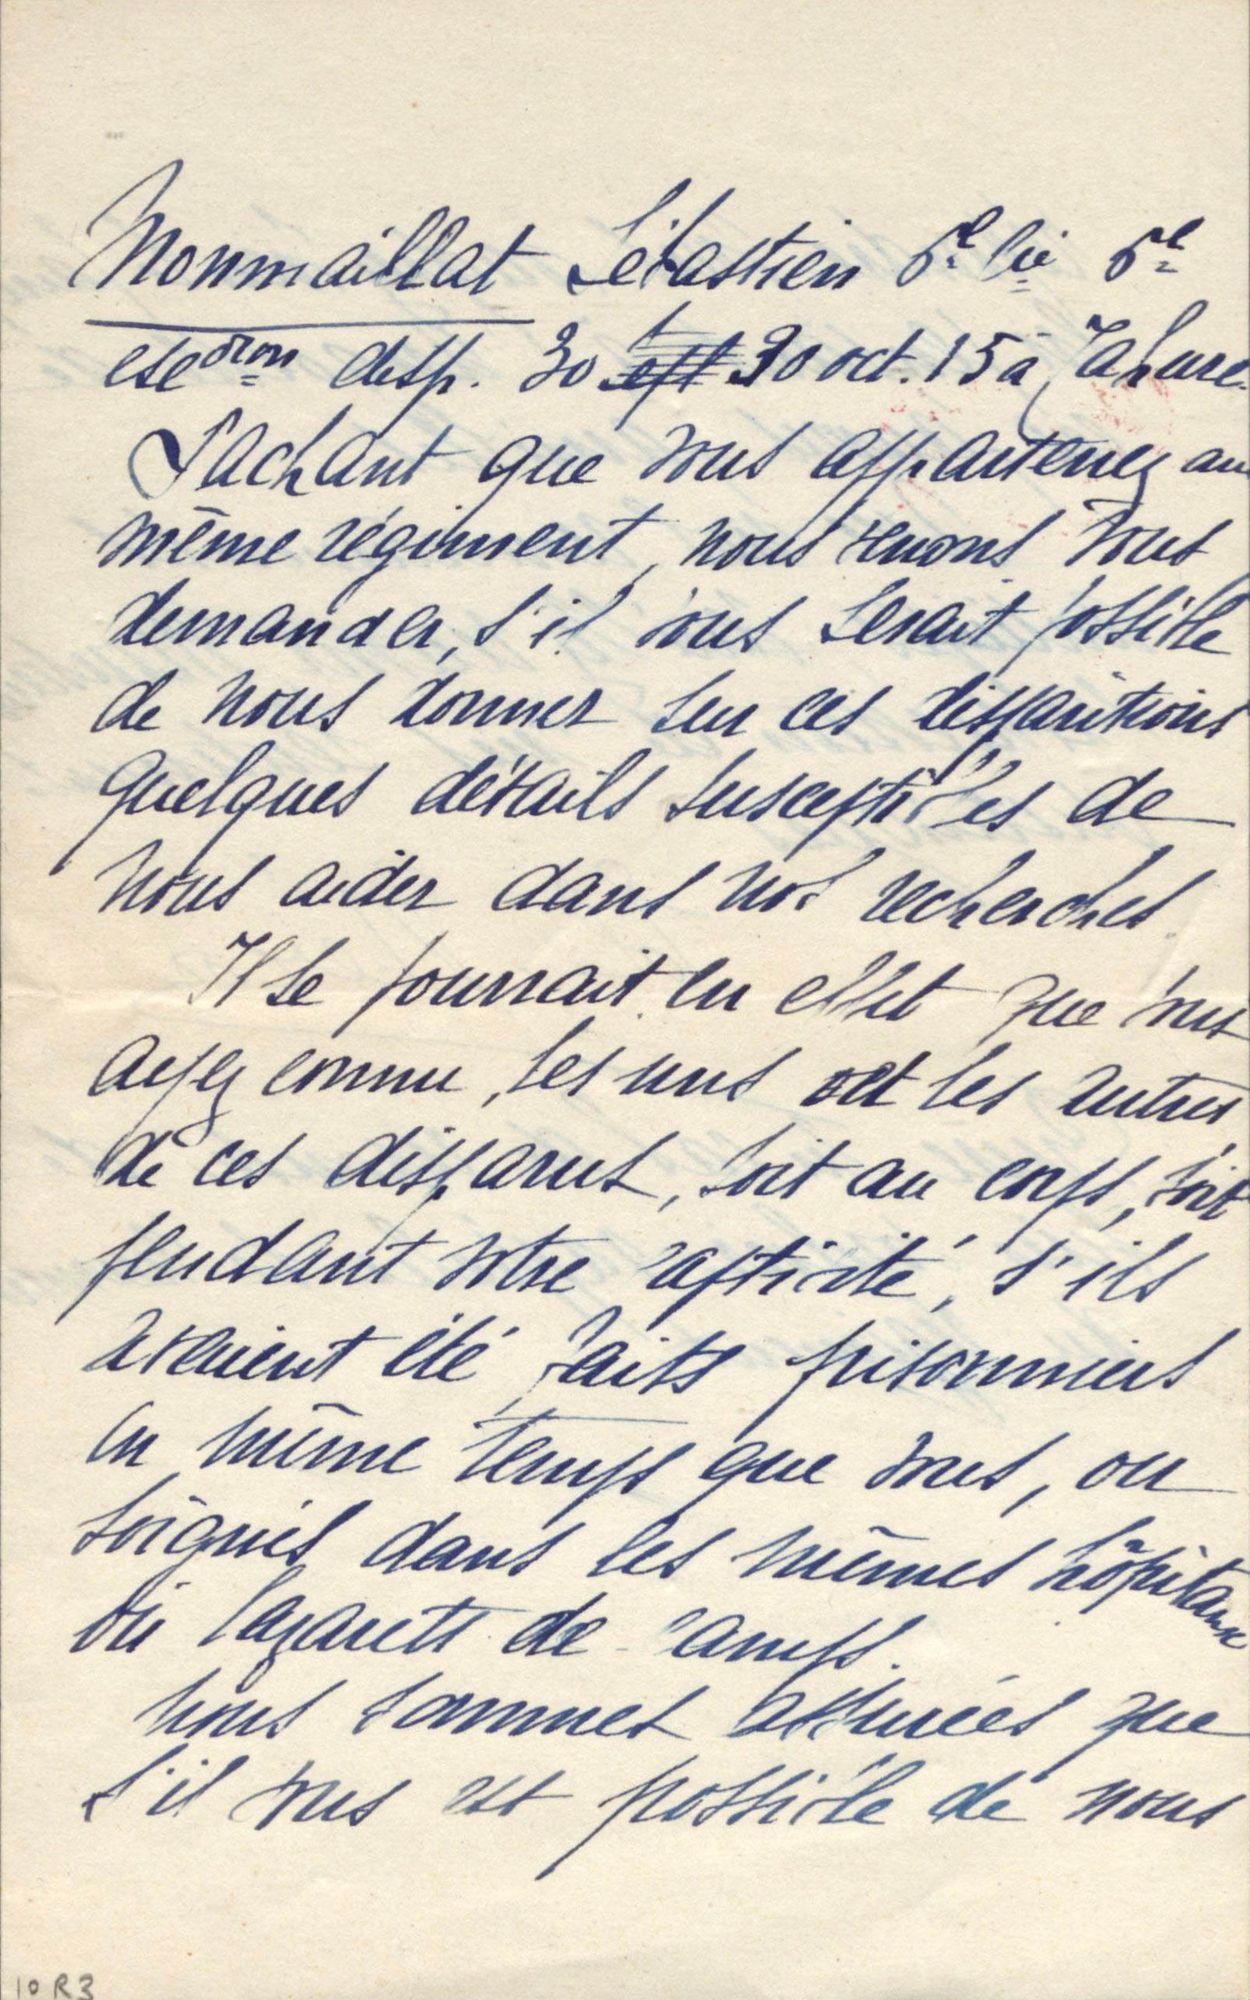 Monmaillat Sébastien 5e Cie 5e
escdron disp. 30 sept 30 oct. 15 à Tahure.
Sachant que vous appartenez au
même régiment, nous venons vous
demander, s'il vous serait possible
de nous donner sur ces disparitions
quelques détails susceptibles de
nous aider dans nos recherches.
Il se pourrait en effet que vous
ayez connu, les uns et les autres
de ces disparus, soit au corps, soit
pendant votre captivité, s'ils
avaient été faits prisonniers
en même temps que vous, ou
soignés dans les mêmes hôpitaux
ou lazarets de camps.
Nous sommes assurées que
s'il vous est possible de nous
10 R3